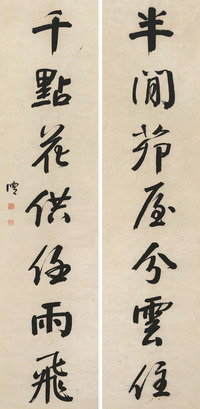 半間茆屋分雲住
千點花供任雨飛